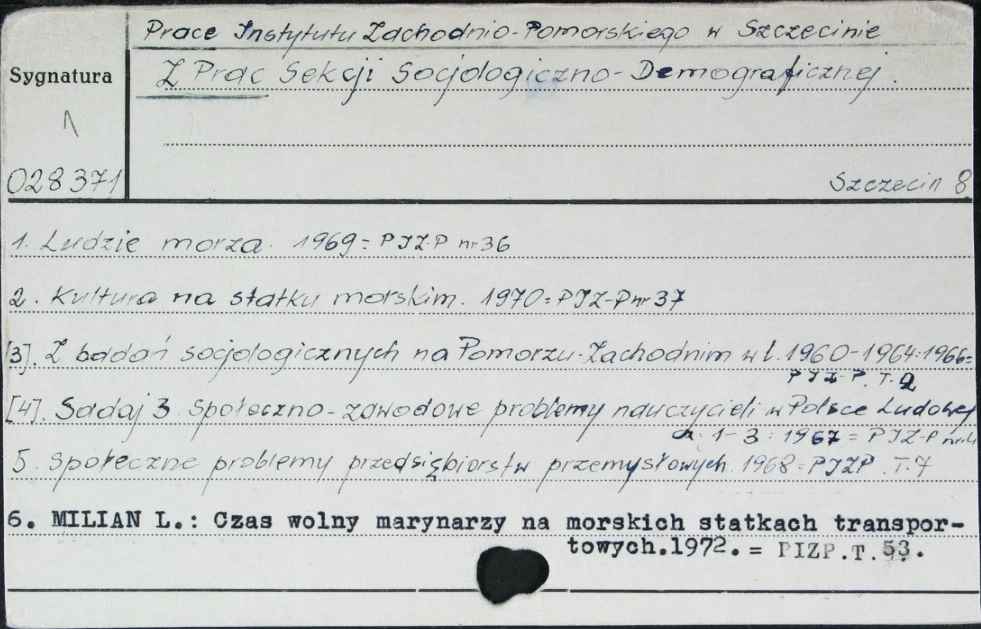 Prace Instytutu Zachodnio-Pomorskiego w Szczecinie
Sygnatura
Z Prac Sekcji Socjologiczno-Demograficznej.
028371
Szczecin 8
1. Ludzie morza. 1969 = PIZ-P nr 36
2. Kultura na statku morskim. 1970 = PIZ-P nr 37
[3]. Z badań socjologicznych na Pomorzu Zachodnim w l. 1960-1964. 1966 =
PIZ-P. T. 2
[4]. Sadaj 3 Społeczno-zawodowe problemy nauczycieli w Polsce Ludowej
1-3 : 1967 = PIZ-P nr 4
5. Społeczne problemy przedsiębiorstw przemysłowych. 1968 = PIZP. T. 7
6. MILIAN L.: Czas wolny marynarzy na morskich statkach transpor-
towych.1972. = PIZP.T.53.